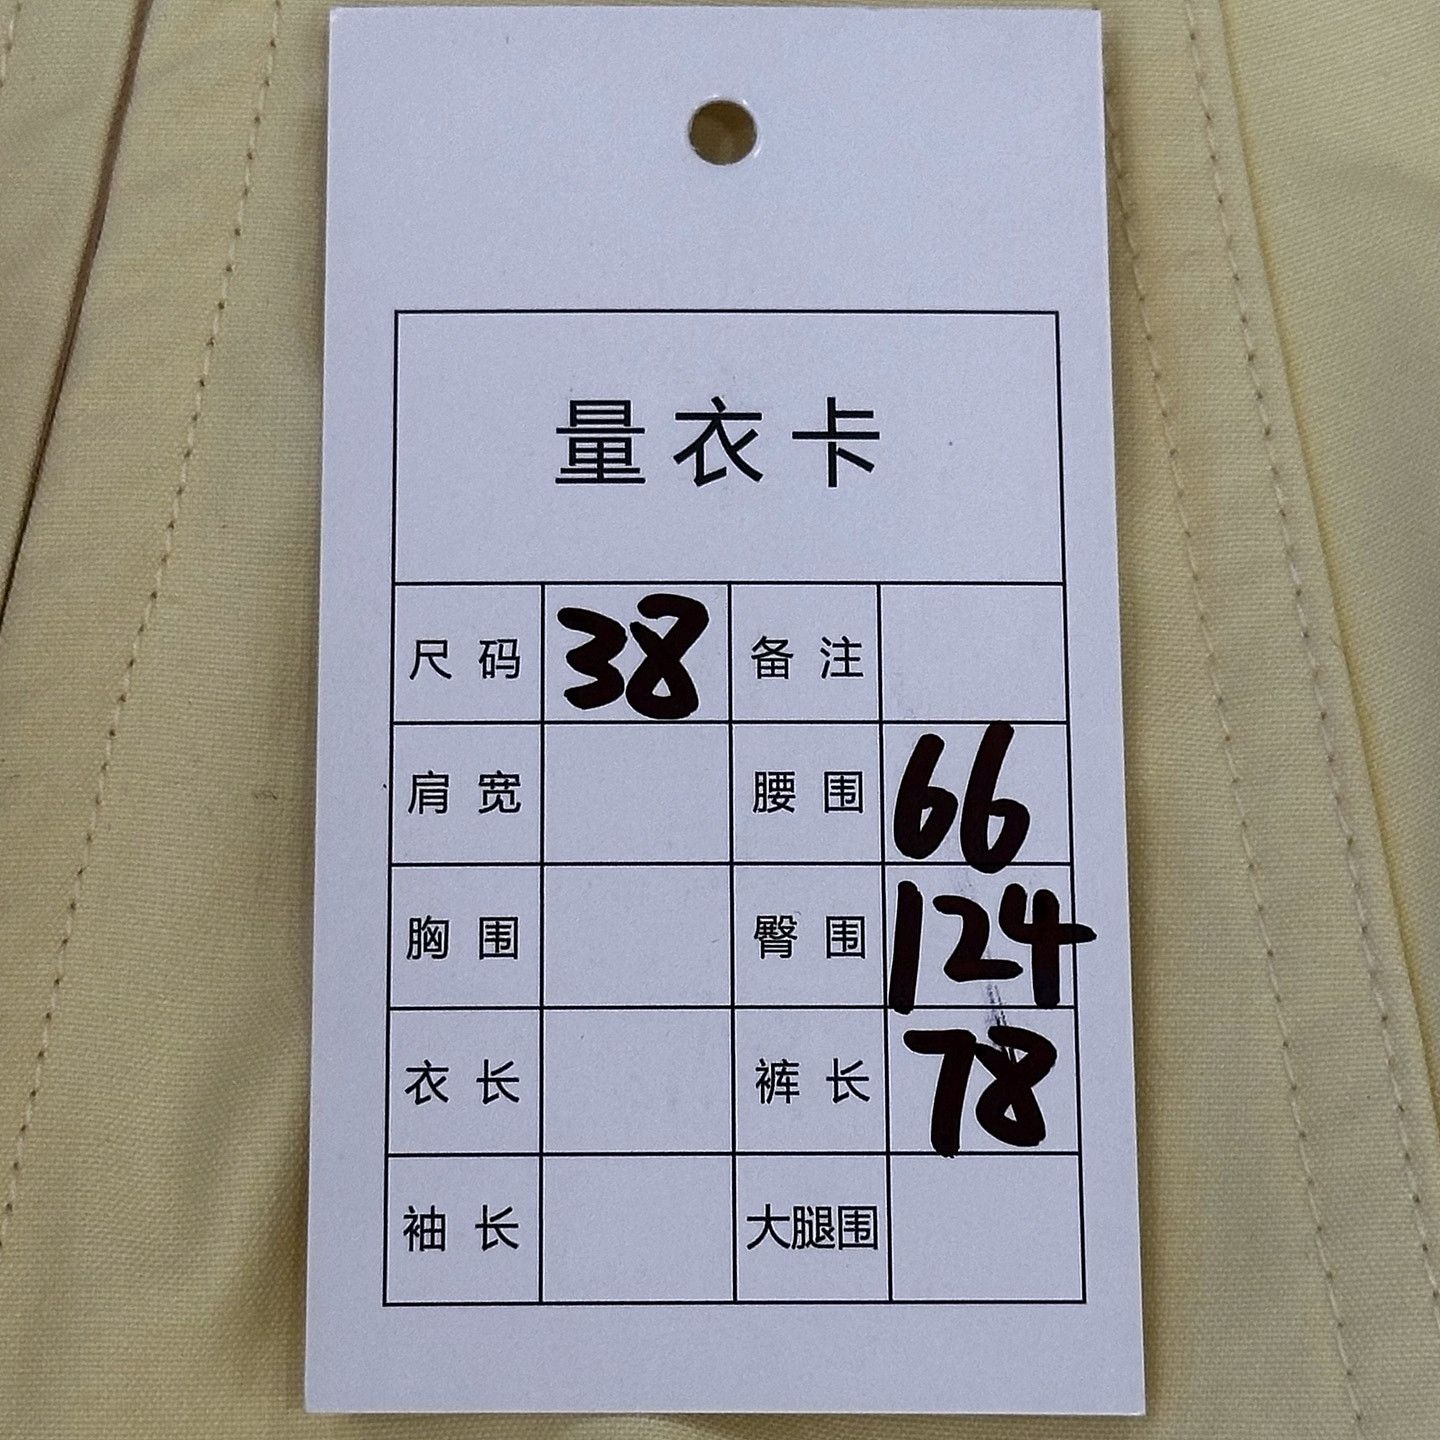 量衣卡
尺码 38 备注
肩宽 腰围 66
胸围 臀围 124
衣长 裤长 78
袖长 大腿围